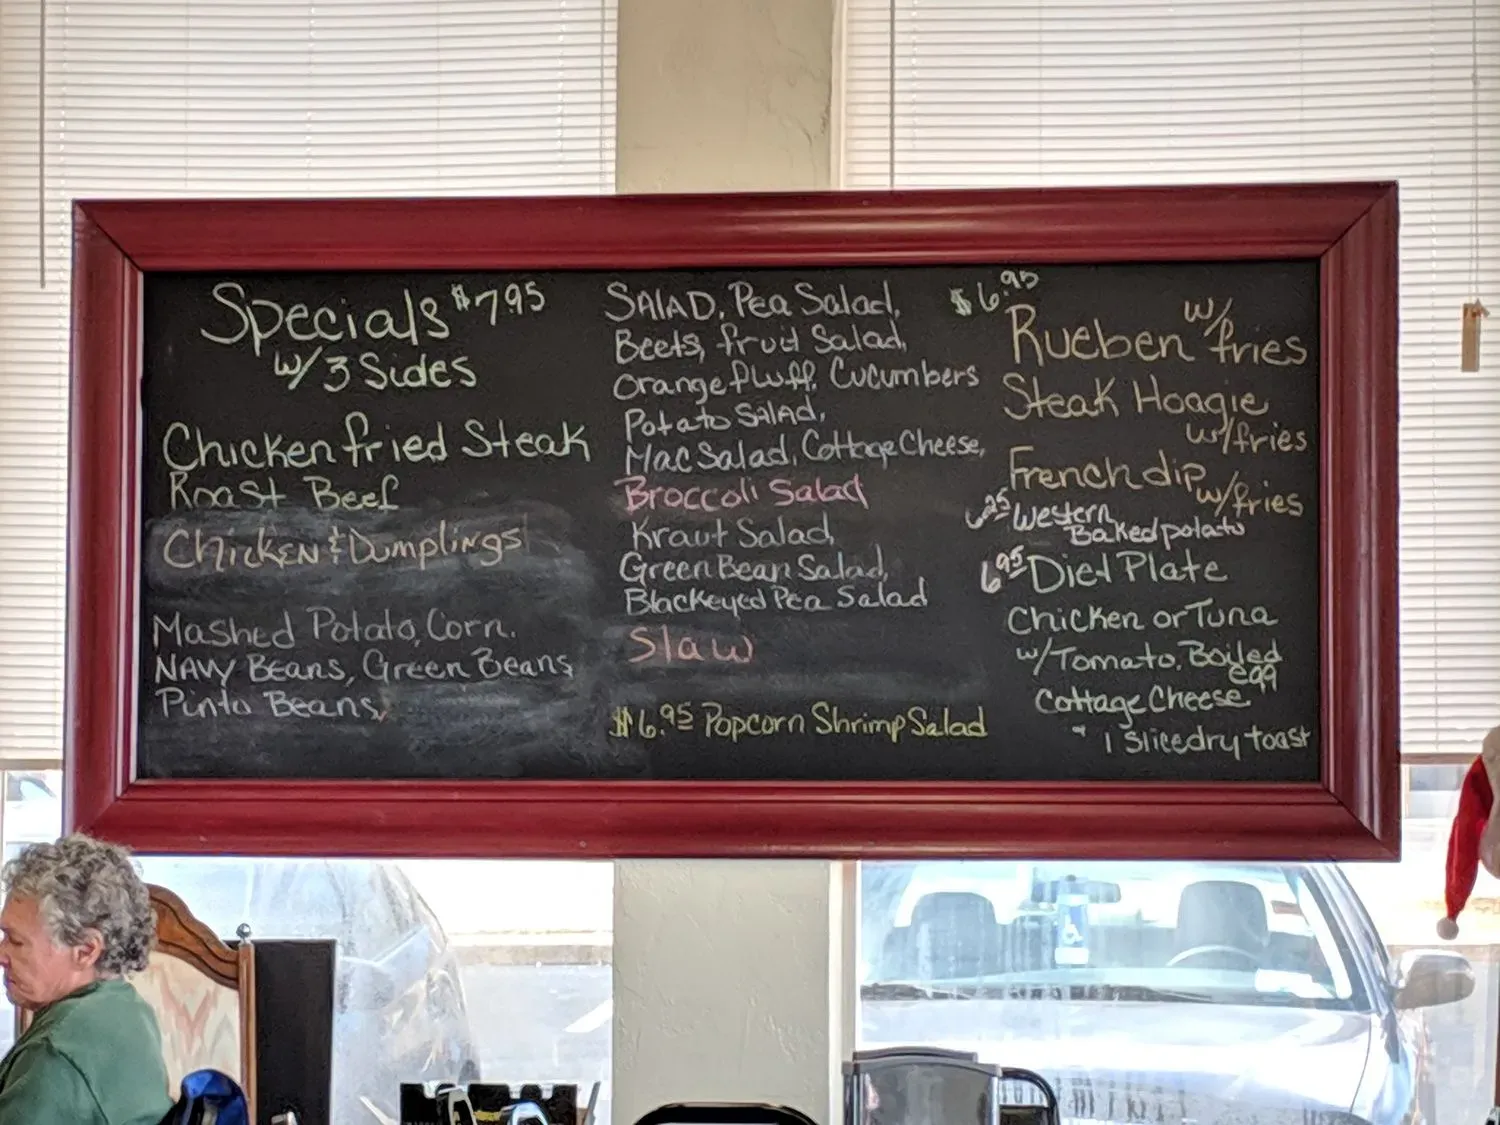 Specials $7.95
w/ 3 Sides
Chicken fried Steak
Roast Beef
Chicken & Dumplings
Mashed Potato, Corn.
NAVY Beans, Green Beans
Pinto Beans,
SALAD, Pea Salad,
Beets, fruit Salad,
Orange fluff, Cucumbers
Potato SALAD,
Mac Salad, Cottage Cheese,
Broccoli Salad
Kraut Salad,
Green Bean Salad,
Blackeyed Pea Salad
Slaw
$6.95 Popcorn Shrimp Salad
$6.95
Rueben w/ fries
Steak Hoagie
w/fries
French dip
w/fries
6.25 Western
Baked potato
6.95 Diet Plate
Chicken or Tuna
w/ Tomato, Boiled
egg
Cottage Cheese
" 1 slice dry toast